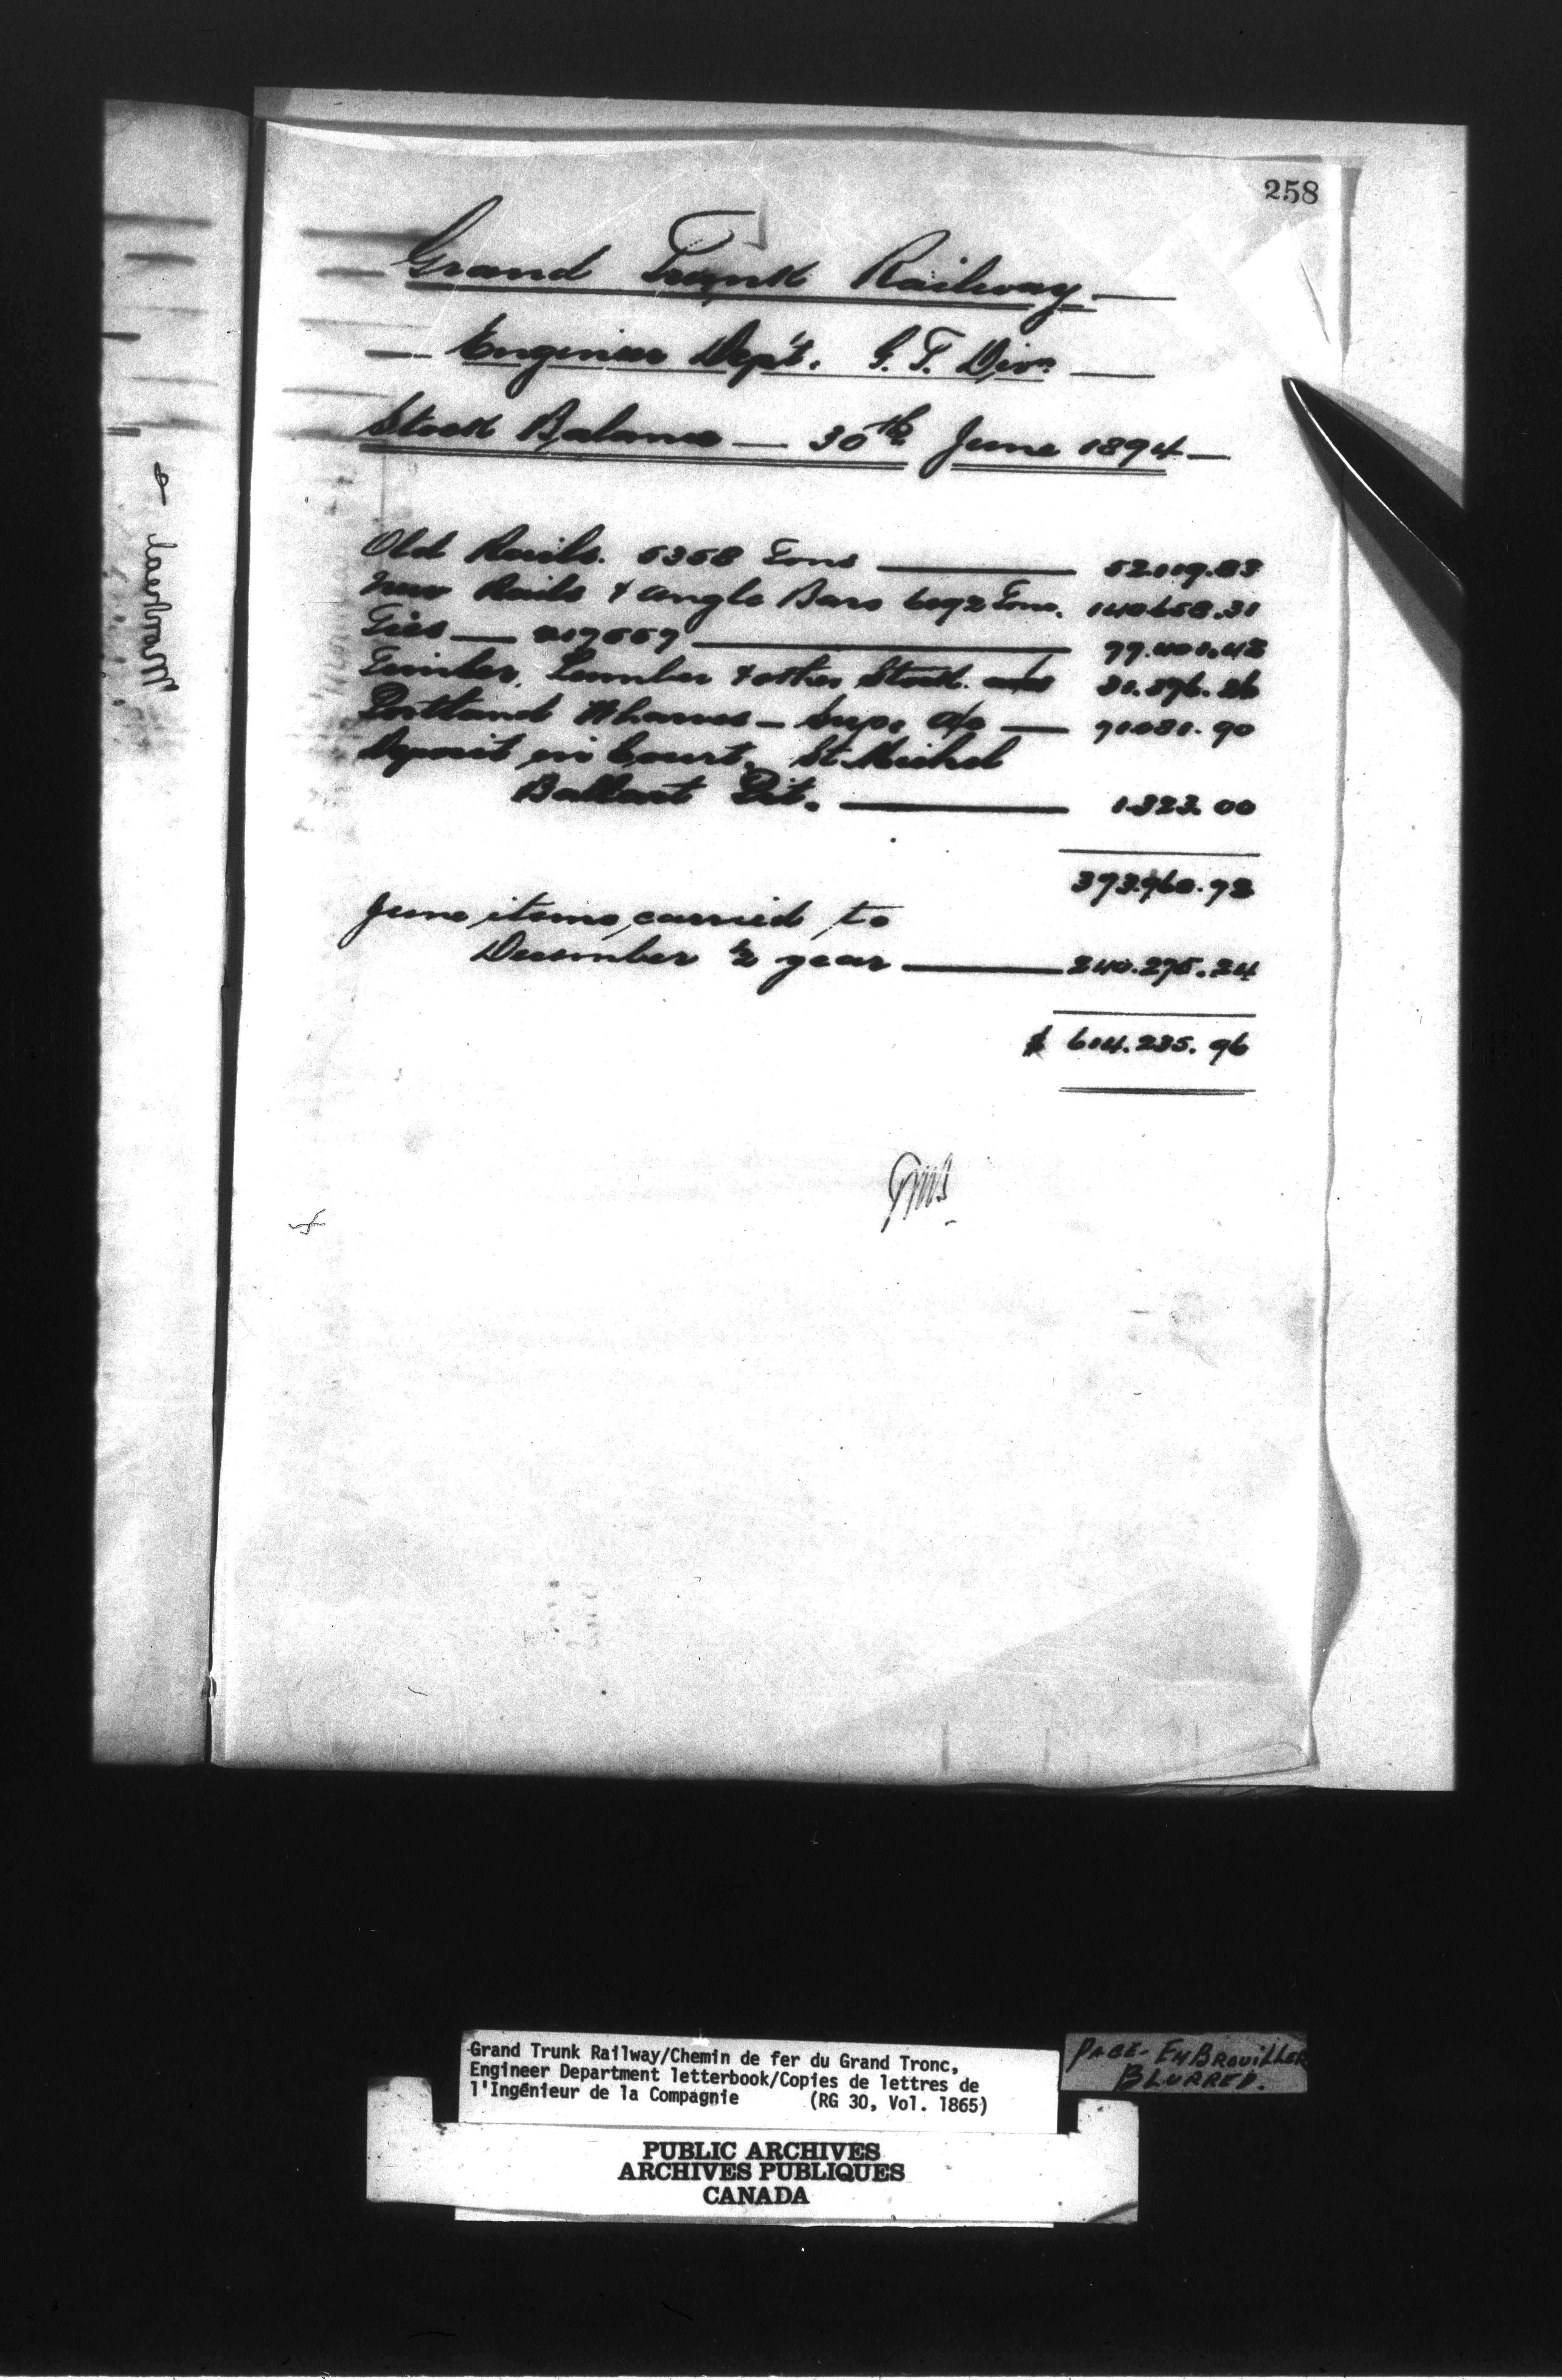 258
Grand Trunk Railway —
— Engineer Dept. G. T. Divn —
Stock Balance — 30th June 1894 —
Old Rails. 5358 Tons — 52.119.83
New Rails & Angle Bars 6092 Tons. 140658.31
Ties — 77.401.42
Timber, Lumber & other Stock. 31.376.26
Portland Wharves — Susp. a/c — 71081.90
Deposit in Court. St Michel
Ballast Pit. — 1.323.00
373.960.72
June items carried to
December ½ year — 240.275.24
$ 614.235.96
Montreal
Grand Trunk Railway/Chemin de fer du Grand Tronc,
Engineer Department letterbook/Copies de lettres de
l'Ingénieur de la Compagnie (RG 30, Vol. 1865)
PAGE - EMBROUILLER
BLURRED.
PUBLIC ARCHIVES
ARCHIVES PUBLIQUES
CANADA